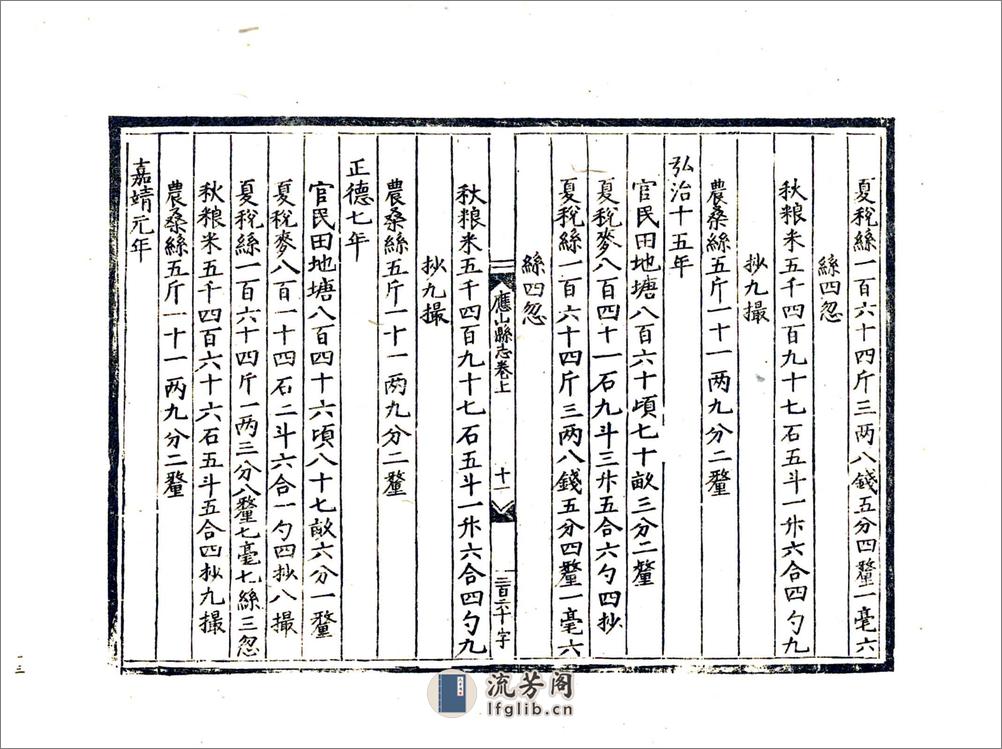 夏稅絲一百六十四斤三两八錢五分四釐一毫六
絲四忽
秋粮米五千四百九十七石五斗一升六合四勺九
抄九撮
農桑絲五斤一十一两九分二釐
弘治十五年
官民田地塘八百六十頃七十畝三分二釐
夏稅麥八百四十一石九斗三升五合六勺四抄
夏稅絲一百六十四斤三两八錢五分四釐一毫六
絲四忽
應山縣志卷上
十一
三百二十字
秋粮米五千四百九十七石五斗一升六合四勺九
抄九撮
農桑絲五斤一十一两九分二釐
正德七年
官民田地塘八百四十六頃八十七畝六分一釐
夏稅麥八百一十四石二斗六合一勺四抄八撮
夏稅絲一百六十四斤一两三分八釐七毫七絲三忽
秋粮米五千四百六十六石五斗五合四抄九撮
農桑絲五斤一十一两九分二釐
嘉靖元年
一三
流芳阁
lfglib.cn